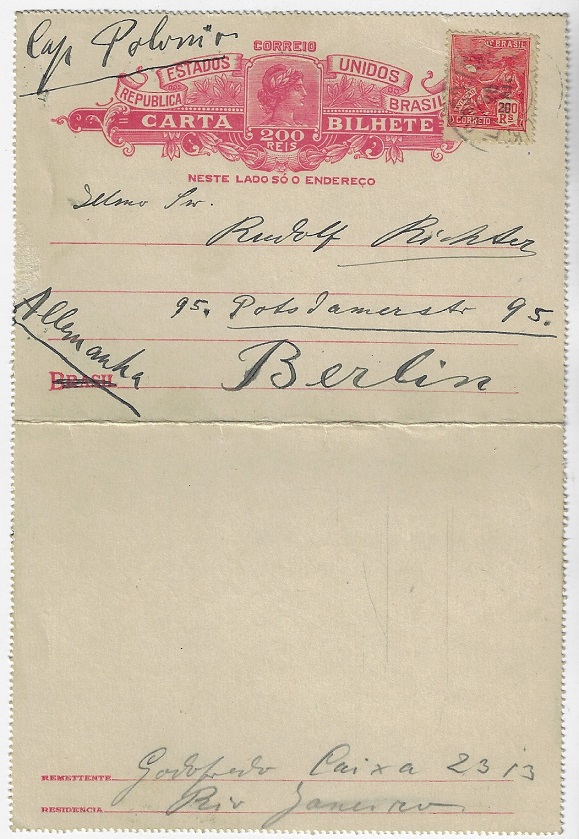 Cap Polonio
CORREIO
ESTADOS UNIDOS
REPUBLICA DO BRASIL
CARTA BILHETE
200
REIS
BRASIL
200
RS
CORREIO
NESTE LADO SÓ O ENDEREÇO
Illmo Sr.
Rudolf Richter
95. Potsdamerstr 95.
Allemanha
Berlin
BRASIL
REMETTENTE Godofredo Caixa 2313
RESIDENCIA Rio Janeiro